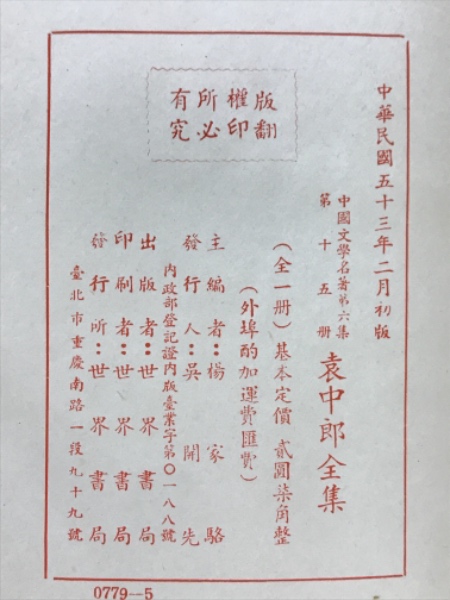 中華民國五十三年二月初版
中國文學名著第六集
第十五册
袁中郎全集
（全一册）基本定價 貳圓柒角整
（外埠酌加運費匯費）
主編者：楊家駱
發行人：吳開先
內政部登記證內版臺業字第〇一八八號
出版者：世界書局
印刷者：世界書局
發行所：世界書局
臺北市重慶南路一段九十九號
版權所有
翻印必究
0779--5